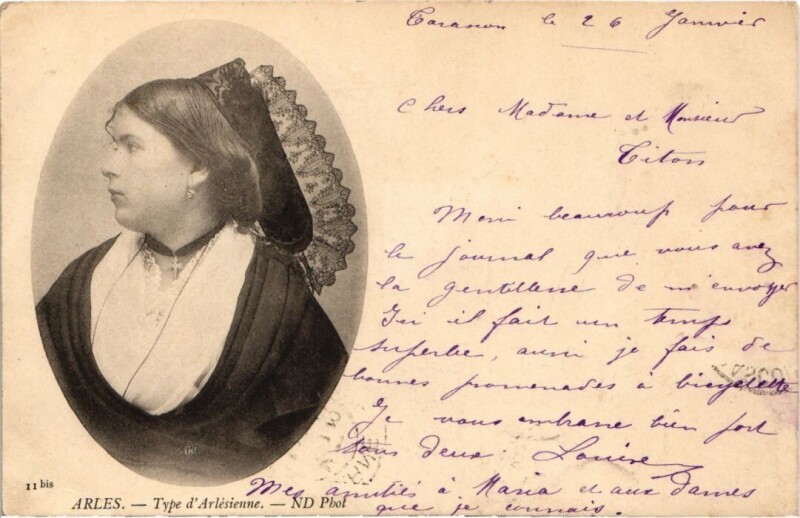 Tarascon le 26 Janvier
Chers Madame et Monsieur
Titon
Merci beaucoup pour
le journal que vous avez
la gentillesse de m'envoyer
Ici il fait un temps
superbe, aussi je fais de
bonnes promenades à bicyclette
Je vous embrasse bien fort
tous deux. Louise
Mes amitiés à Maria et aux dames
que je connais.
11 bis
ARLES. — Type d'Arlésienne. — ND Phot